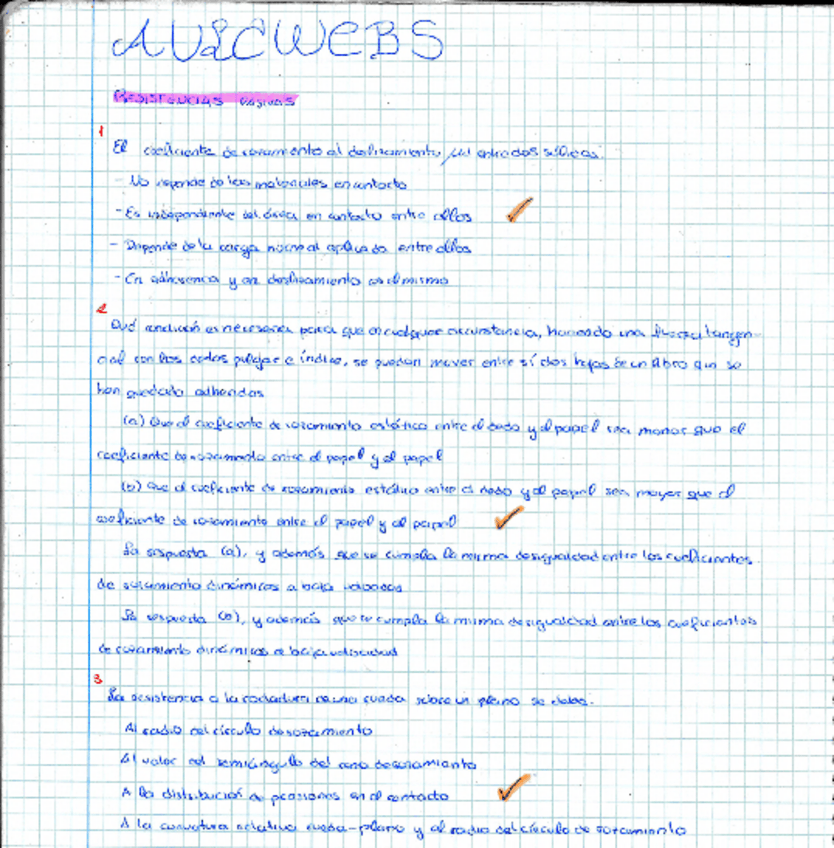 AULCWEBS
RESISTENCIAS PASIVAS
1
El coeficiente de rozamiento al deslizamiento, μ entre dos sólidos:
- No depende de los materiales en contacto
- Es independiente del área en contacto entre ellos
- Depende de la carga normal aplicada entre ellos
- En adherencia y en deslizamiento es el mismo
2
Qué condición es necesaria para que en cualquier circunstancia, haciendo una fuerza tangen-
cial con los dedos pulgar e índice, se puedan mover entre sí dos hojas de un libro que se
han quedado adheridas
(a) Que el coeficiente de rozamiento estático entre el dedo y el papel sea menor que el
coeficiente de rozamiento entre el papel y el papel
(b) Que el coeficiente de rozamiento estático entre el dedo y el papel sea mayor que el
coeficiente de rozamiento entre el papel y el papel
La respuesta (a), y además que se cumpla la misma desigualdad entre los coeficientes
de rozamiento dinámicos a baja velocidad
La respuesta (b), y además que se cumpla la misma desigualdad entre los coeficientes
de rozamiento dinámicos a baja velocidad
3
La resistencia a la rodadura de una rueda sobre un plano se debe:
Al radio del círculo de rozamiento
Al valor del semiángulo del cono de rozamiento
A la distribución de presiones en el contacto
A la curvatura relativa rueda-plano y al radio del círculo de rozamiento